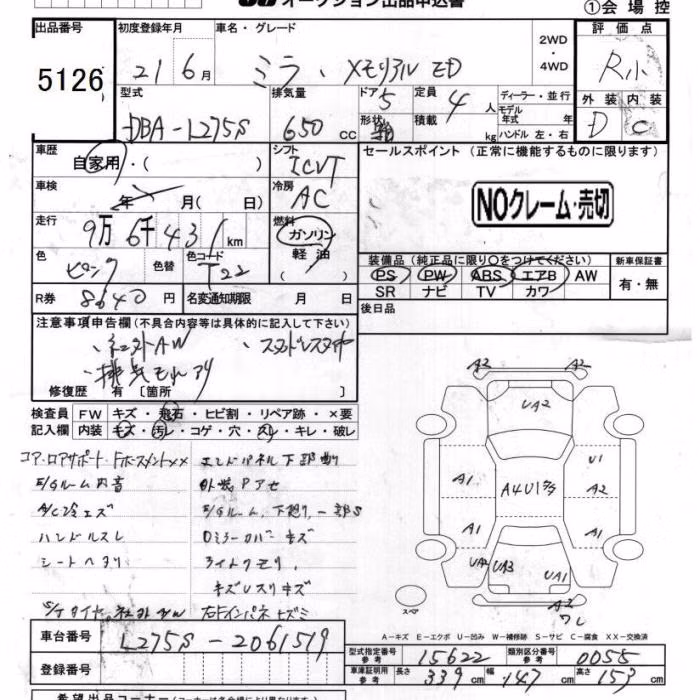 オークション出品申込書
①会場控
出品番号 初度登録年月 車名・グレード 2WD・4WD 評価点
5126 21 6月 ミラ、メモリアル ED R小
型式 排気量 ドア 5 定員 4人 ディーラー・並行 外装 内装
DBA-L275S 650cc 形状 積載 kg モデル年式 年式 ハンドル 左・右 D C
車歴 自家用・( ) シフト ICVT セールスポイント (正常に機能するものに限ります)
車検 年 月( 日) 冷房 AC
NOクレーム・売切
走行 9万6千431km 燃料 ガソリン 軽油 ( )
色 ピンク 色替 色コード T22
装備品 (純正品に限り○をつけてください) 新車保証書
PS PW ABS エアB AW 有・無
SR ナビ TV カワ
R券 8640円 名変通知期限 月 日 後日品
注意事項申告欄 (不具合内容等は具体的に記入して下さい)
、社外AW 、スタッドレスタイヤ
、排気もれアリ
修復歴 有 〔箇所 〕
検査員 FW キズ・飛石・ヒビ割・リペア跡・×要
記入欄 内装 キズ・汚レ・コゲ・穴・スレ・キレ・破レ
コア・ロアサポート・Fホースメント×× エンドパネル下部
E/Gルーム内音 外装Pアセ
A/C冷エズ E/Gルーム、下廻り、一部S
ハンドルスレ Dミラーカバーキズ
シートヘタリ ライトクモリ
キズU スリキズ
S/Tタイヤ 社外AW 右Fインパネキズミ
A2
A2
UA2
U1
A1 A4U1 A2
A1 A1
UA2 UA3 UA1
A2
ワレ
スペア
A−キズ E−エクボ U−凹み W−補修跡 S−サビ C−腐食 XX−交換済
車台番号 L275S-2061519
型式指定番号 参考 15622 類別区分番号 参考 0055
登録番号 車庫証明用 参考 長さ 339cm 幅 147cm 高さ 153cm
希望出品コーナー